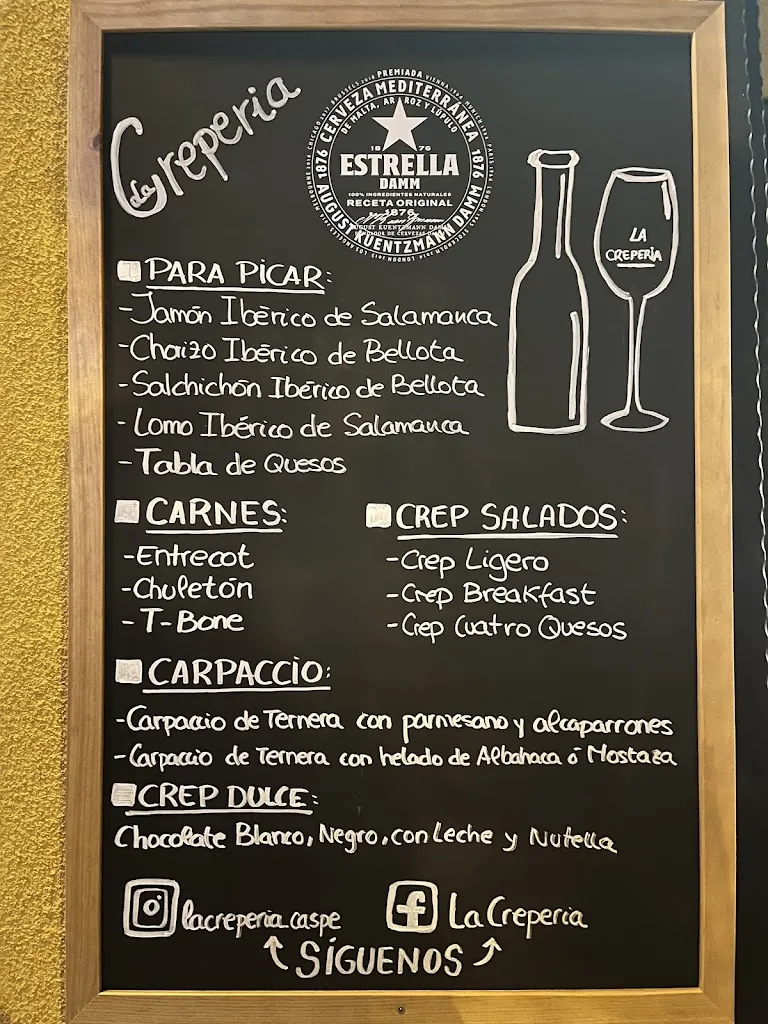 La Creperia
PREMIADA
CERVEZA MEDITERRÁNEA
DE MALTA, ARROZ Y LÚPULO
1876
1876
18 76
ESTRELLA
DAMM
100% INGREDIENTES NATURALES
RECETA ORIGINAL
1876
AUGUST KUENTZMANN DAMM
AUGUST KUENTZMANN DAMM
FUNDADOR DE CERVEZAS DAMM
LA
CREPERIA
PARA PICAR:
-Jamón Ibérico de Salamanca
-Chorizo Ibérico de Bellota
-Salchichón Ibérico de Bellota
- Lomo Ibérico de Salamanca
- Tabla de Quesos
CARNES:
-Entrecot
-Chuletón
- T-Bone
CREP SALADOS:
-Crep Ligero
-Crep Breakfast
-Crep Cuatro Quesos
CARPACCIO:
-Carpaccio de Ternera con parmesano y alcaparrones
-Carpaccio de Ternera con helado de Albahaca ó Mostaza
CREP DULCE:
Chocolate Blanco, Negro, con Leche y Nutella
lacreperia.caspe
La Creperia
SÍGUENOS